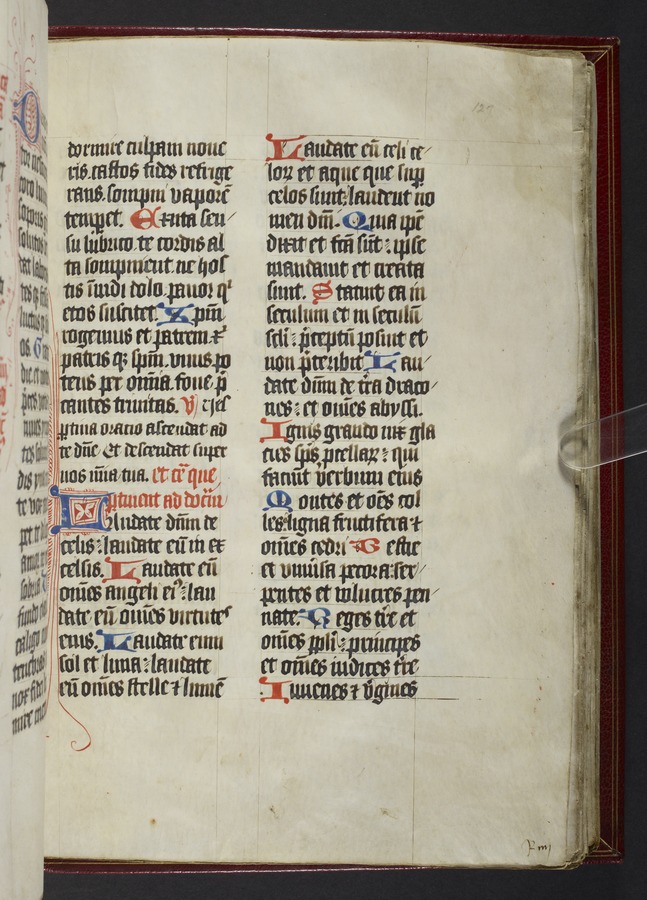 127
dormire culpam noue
ris castos fides refrige
rans sompni vaporē
tempet. Exuta sen
su lubrico te cordis al
ta sompnient ne hos
tis īuidi dolo pauor qͥ
etos suscitet. Xpm̄
rogemus et patrem ⁊
patris qꝫ spm̄ vnus po
tens per omīa foue p̄
cantes trinitas. V Ves
ꝑtina oratio ascendat ad
te dn̄e Et descendat super
nos mīa tua. et cet̄ que
ꝑtinent ad
Laudate dn̄m de
celis: laudate eū in ex
celsis. Laudate eū
om̄es angeli eiꝰ: lau
date eū om̄es virtutes
eius. Laudate eum
sol et luna: laudate
eū om̄es stelle ⁊ lumē
Laudate eū celi ce
loꝝ et aque que suꝑ
celos sunt: laudent no
men dn̄i. Quia ipē
dixit et fc̄a sūt: ipse
mandauit et creata
sunt. Statuit ea in
seculum et in seculū
scl̄i: p̄ceptū posuit et
non p̄teribit Lau
date dn̄m de tr̄a draco
nes: et om̄es abyssi.
Ignis grando nix gla
cies sp̄s ꝓcellaꝝ: qui
faciūt verbum eius
Montes et oēs col
les: ligna fructifera ⁊
om̄es cedri Bestie
et vniūsa pecora: ser
pentes et volucres pen
nate. Reges tr̄e et
om̄es ppl̄i: principes
et om̄es iudices tr̄e
Iuuenes ⁊ v̄gines